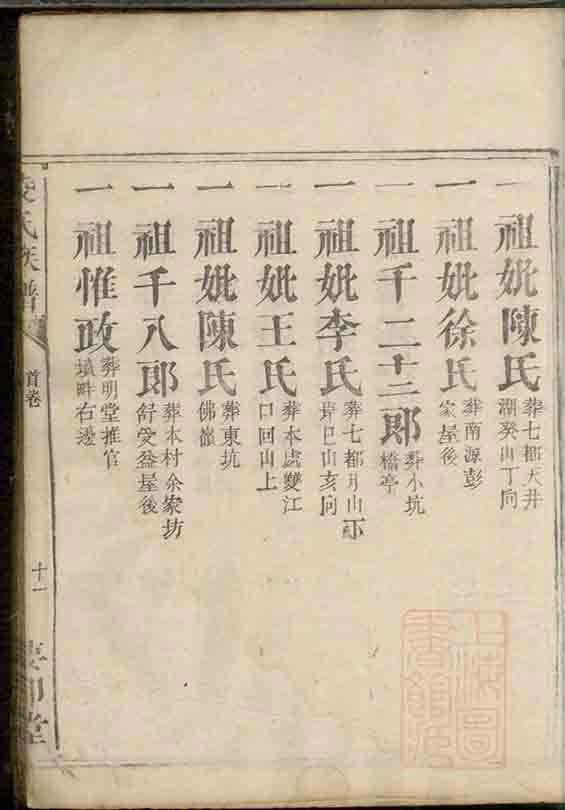 一祖妣陳氏 葬七都大井
湖癸山丁向
一祖妣徐氏 葬南源彭
家屋後
一祖千二十二郎 葬小坑
橋亭
一祖妣李氏 葬七都月山下
巳山亥向
一祖妣王氏 葬本處雙江
口回山上
一祖妣陳氏 葬東坑
佛嶺
一祖千八郎 葬本村余家坊
舒受益屋後
一祖惟政 葬明堂推官
墳畔右邊
氏族譜
首卷
十一
堂
上海圖
書館藏